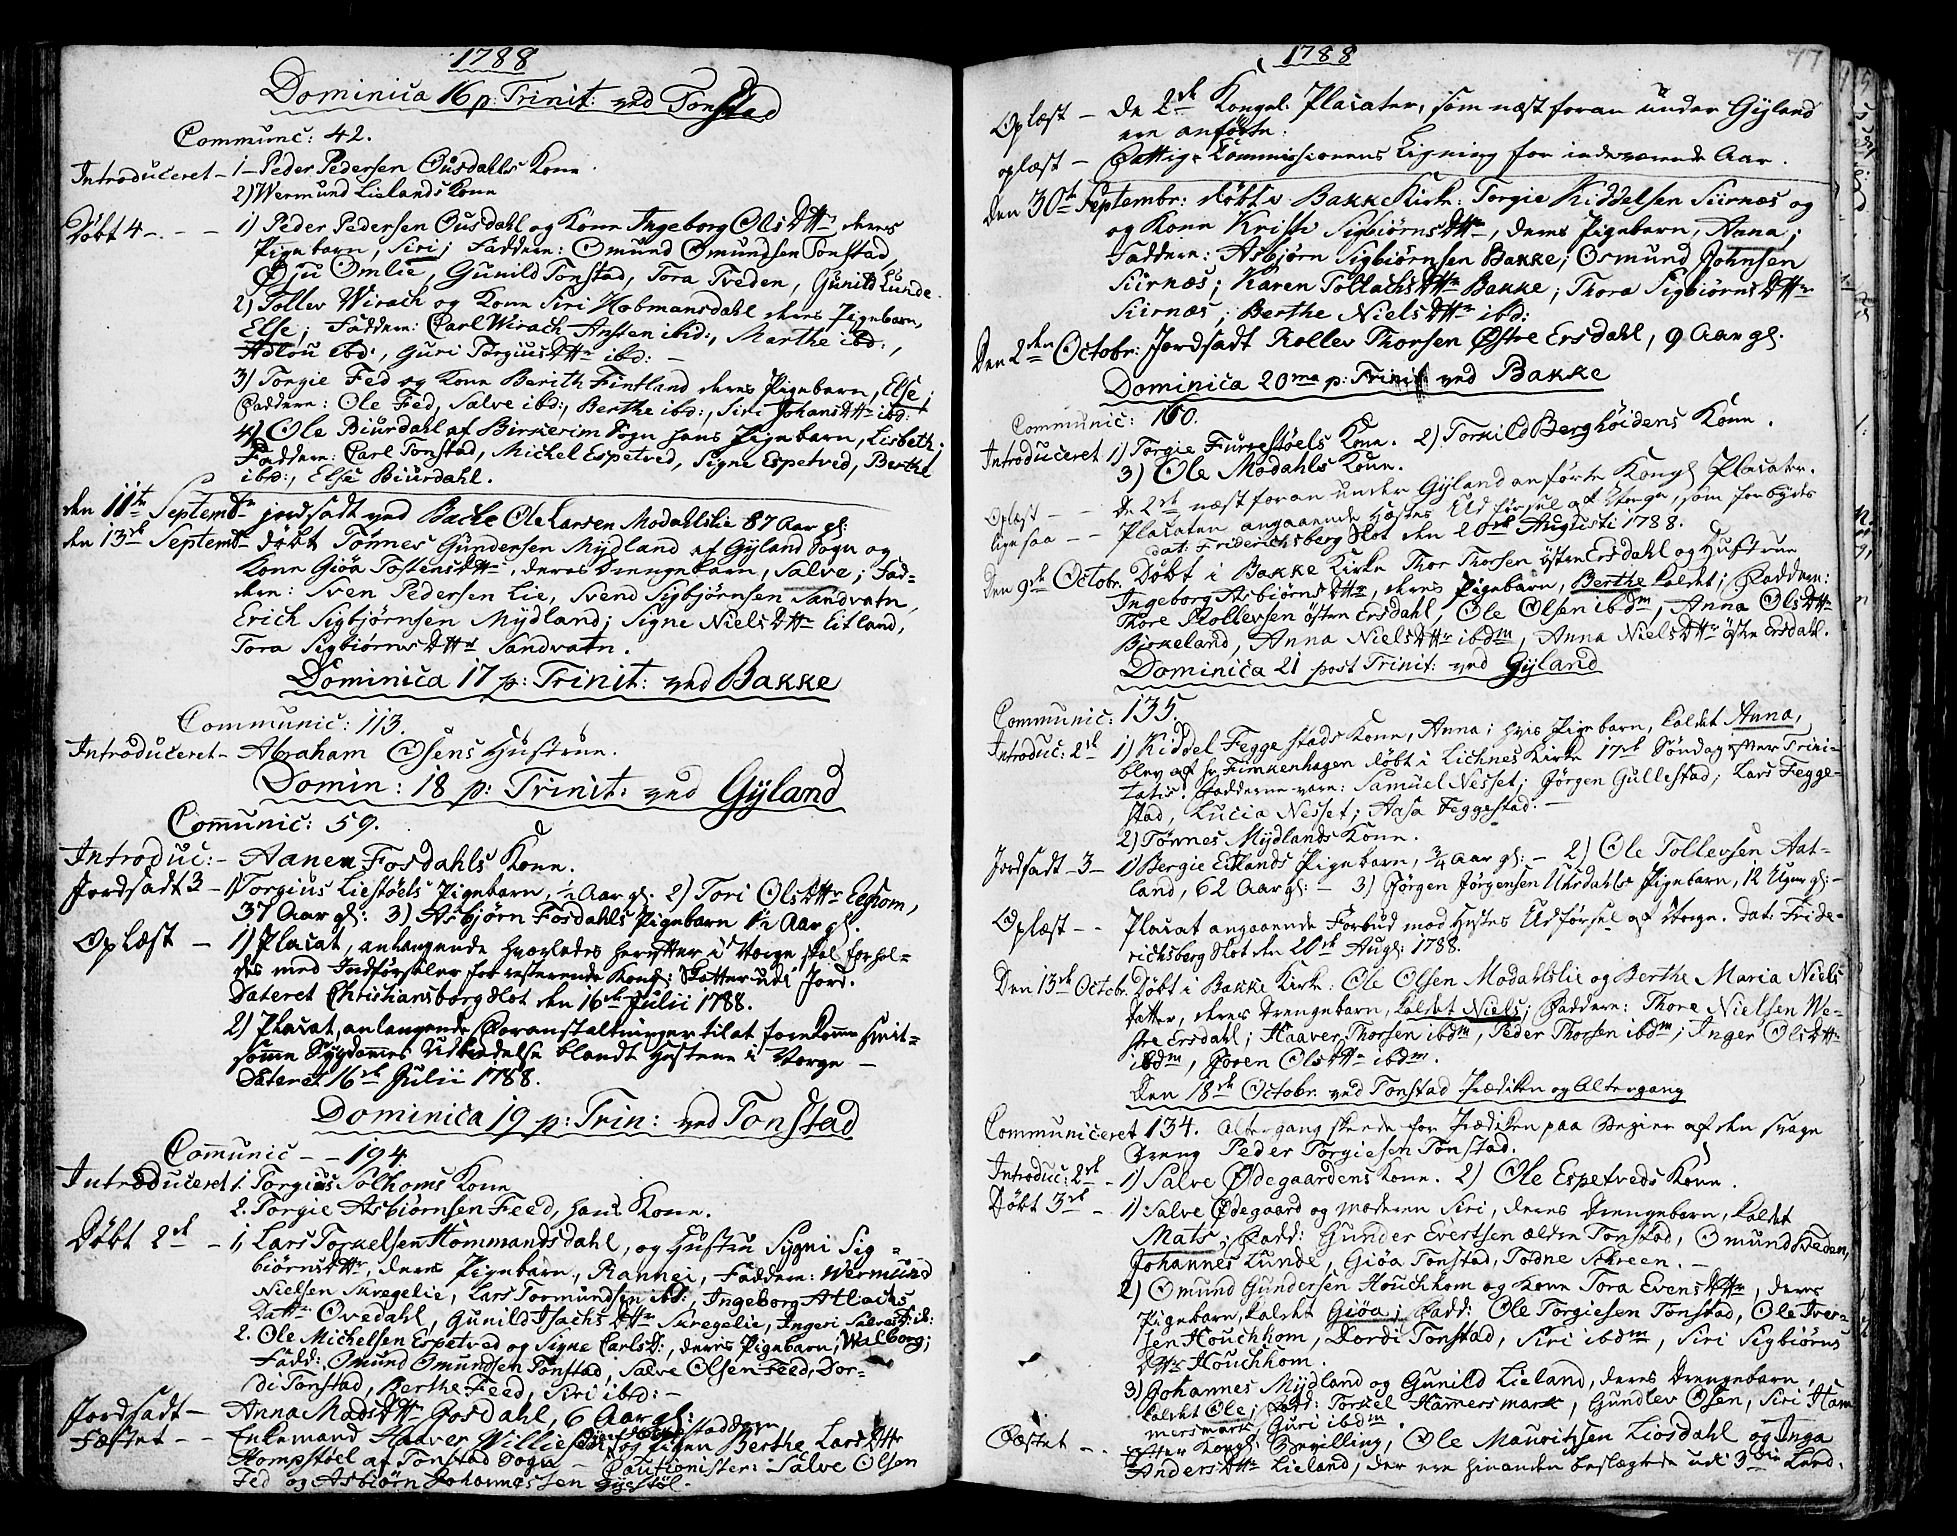 1788
Dominica 16 p: Trinit: ved Tonstad
Communc: 42.
Introduceret – 1– Peder Pedersen Ousdahls Kone
2) Wermund Lielands Kone
Døbt 4 – . – – 1) Peder Pedersen Ousdahl og Kone Ingeborg OlsDttr, deres
Pigebarn, Siri; Faddere: Omund Omundsen Tonstad,
Omlie, Gunild Tonstad, Tora Tveden, Gunild Lunde.
2) Tollev Wirach og Kone Siri Habmansdahl deres Pigebarn,
Else; Faddere: Carl Wirach Ansten ibid:, Marthe ibd:,
Adlou ibd:, Guri TorgiusDttr ibd: –
3) Torgie Fed og Kone Berith Fintland deres Pigebarn, Else;
Faddere: Ole Fed, Salve ibd:, Berthe ibd:, Siri JohansDttr ibd:
4) Ole Biurdahl af Birkerim Sogn hans Pigebarn, Lisbeth;
Faddere: Carl Tonstad, Michel Espetved, Signe Espetved, Berthe
ibd:, Else Biurdahl.
den 11te Septembr jordsadt ved Bache Ole Larsen Modahlslie 87 Aar gl:
den 13de Septembr døbt Tønnes Gundersen Mydland af Gyland Sogn og
Kone Giøa TostensDttr, deres Drengebarn, Salve; Fad-
dere: Sven Pedersen Lie, Svend Sigbjørnsen Sandvatn,
Erich Sigbjørnsen Mydland; Signe NielsDttr Eitland,
Tora SigbiørnsDttr Sandvatn.
Dominica 17 p: Trinit: ved Bakke
Communic: 113.
Introduceret – Abraham Osens Hustrue.
Domin: 18 p: Trinit: ved Gyland
Comunic: 59.
Introduc: – Aanen Fosdahls Kone.
Jordsadt 3 – 1) Torgius Liestøels Pigebarn, ½ Aar gl: 2) Tori OlsDttr Eeghom,
37 Aar gl: 3) Asbjørn Fosdahls Pigebarn 1½ Aar gl.
Oplæst – 1) Placat, anlangende hvorledes herefter i Norge skal forhol-
des med Indførseler for resterende Kongl: Skatter udi Jord.
Dateret Christiansborg Slot den 16de Julii 1788.
2) Placat, anlangende Foranstaltninger til at forekomme smit-
somme Sygdommes Udbredelse blandt Hestene i Norge –
Dateret 16de Julii 1788.
Dominica 19 p: Trin: ved Tonstad
Comunic – – 194
Introduceret 1. Torgius Solhoms Kone
2. Torgie Asbiørnsen Feed, hans Kone.
Døbt 2de – 1, Lars Torkelsen Hommandsdahl, og Hustru Sygni Sig-
biørnsDttr, deres Pigebarn, Rannei, Faddere: Wermund
Nielsen Skregelie, Lars Tormundsen ibd:, Ingeborg Atlachs
Dattr Ovedahl, Gunild IsachsDttr Skregelie, Ingeri SalvesD: ib:
2. Ole Michelsen Espetved og Signe CarlsD:, deres Pigebarn, Walborg;
Fadd: Omund Omundsen Tonstad, Salve Olsen Feed, Dor-
di Tonstad, Berthe Feed, Siri ibd: –
Jordsadt – Anna MadsDttr Josdahl, 6 Aar gl:
Fæstet – – Enkemand Haaver Williesen og Pigen Berthe LarsDttr
Hompstøel af Tonstad Sogn – Cautionister: Salve Olsen
Fed og Asbiørn Johannessen
1788
77
Oplæst – De 2de Kongel: Placater, som næst foran under Gyland
ere anførte:
oplæst – Fattige Commissionens Ligning for indeværende Aar.
Den 30te Septembr: døbt i Bakke Kirke: Torgie Kiddelsen Siirnæs og
og Kone Kristi SigbiørnsDttr, deres Pigebarn, Anna;
Faddere: Asbjørn Sigbiørnsen Bakke; Osmund Johnsen
Siirnæs; Karen TollachsDttr Bakke; Thora SigbiørnsDttr
Siirnæs; Berthe NielsDttr ibd:
Den 2den Octobr: Jordsadt Rollev Thorsen Østre Ersdahl, 9 Aar gl.
Dominica 20me p: Trinit ved Bakke
Communic: 160.
Introduceret 1) Torgie Furrestøels Kone. 2) Torkild Berghøidens Kone.
3) Ole Modahls Kone.
Oplæst – – De 2de næst foran under Gyland anførte Kongl Placater.
ligesaa – – Placaten angaaende Hestes Udførsel af Norge, som forbydes
dat: Friderichsberg Slot den 20de Augusti 1788.
Den 9de Octobr. Døbt i Bakke Kirke Thor Thorsen østre Ersdahl og Hustrue
Ingeborg AsbiørnsDttr, deres Pigebarn, Berthe kaldet; Faddere:
Thore Rollevsen østre Ersdahl, Ole Olsen ibdm, Anna OlsDttr
Birkeland, Anna NielsDttr ibdm, Anna NielsDttr østre Ersdahl.
Dominica 21 post Trinit: ved Gyland
Communic: 135.
Introduc: 2de 1) Kiddel Feggestads Kone, Anna; hvis Pigebarn, kaldet Anna,
blev af Hr Finkenhagen døbt i Lichnes Kirke 17de Søndag efter Trini-
tatis. Fadderne vare: Samuel Nesset; Jørgen Gullestad; Lars Fegge-
stad, Lucia Nesset; Aasa Feggestad: –
2) Tønnes Mydlands Kone.
Jordsadt – 3 – 1) Bergie Eitlands Pigebarn, ¾ Aar gl: – 2) Ole Tollevsen Aat-
land, 62 Aar gl: – 3) Jørgen Jørgensen Uhrdahls Pigebarn, 12 Uger gl: –
Oplæst – – Placat angaaende Forbud mod Hestes Udførsel af Norge. Dat: Fride-
richsberg Slot den 20de Augl: 1788.
Den 13de Octobr. Døbt i Bakke Kirke: Ole Olsen Modahlslie og Berthe Maria Niels
datter, deres Drengebarn, kaldet Niels; Faddere: Thore Nielsen We-
stre Ersdahl; Haaver Thorsen ibdm, Peder Thorsen ibdm, Inger OlsDttr
ibdm, Joren OlsDttr ibdm.
Den 18de Octobr. ved Tonstad Prædiken og Altergang
Communiceret 134. Altergang skeede for Prædiken paa Begier af den svage
Dreng Peder Torgiesen Tonstad.
Introduc: 2de – 1) Salve Ødegaardens Kone. 2) Ole Espetveds Kone.
Døbt 3de – 1) Salve Ødegaard og Moderen Siri, deres Drengebarn, kaldet
Mats; Fadd: Gunder Evertsen ældre Tonstad, Omund Tveden,
Johannes Lunde, Giøa Tonstad, Todne Schreen. –
2) Omund Gundersen Houchhom og Kone Tora EvensDttr, deres
Pigebarn, kaldet Giøa; Fadd: Ole Torgiesen Tonstad, Ole Iver-
sen Houchhom, Dordi Tonstad, Siri ibdm, Siri Sigbiørns
Dttr Houchhom.
3) Johannes Mydland og Gunild Lieland, deres Drengebarn,
kaldet Ole; Fadd: Torkel Hamersmark, Gundlev Osen, Siri Ham
mersmark, Guri ibdm.
Fæstet – . Efter Kongl: Bevilling, Ole Mauritzsen Liosdahl og Inga
AndersDttr Lieland, der ere hinanden beslægtede udi 3die Leed.